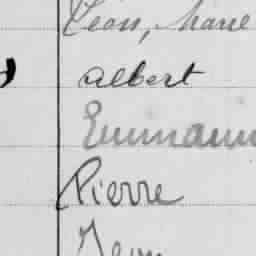 Léon, Marie
Albert
Emmanu
Pierre
Jean